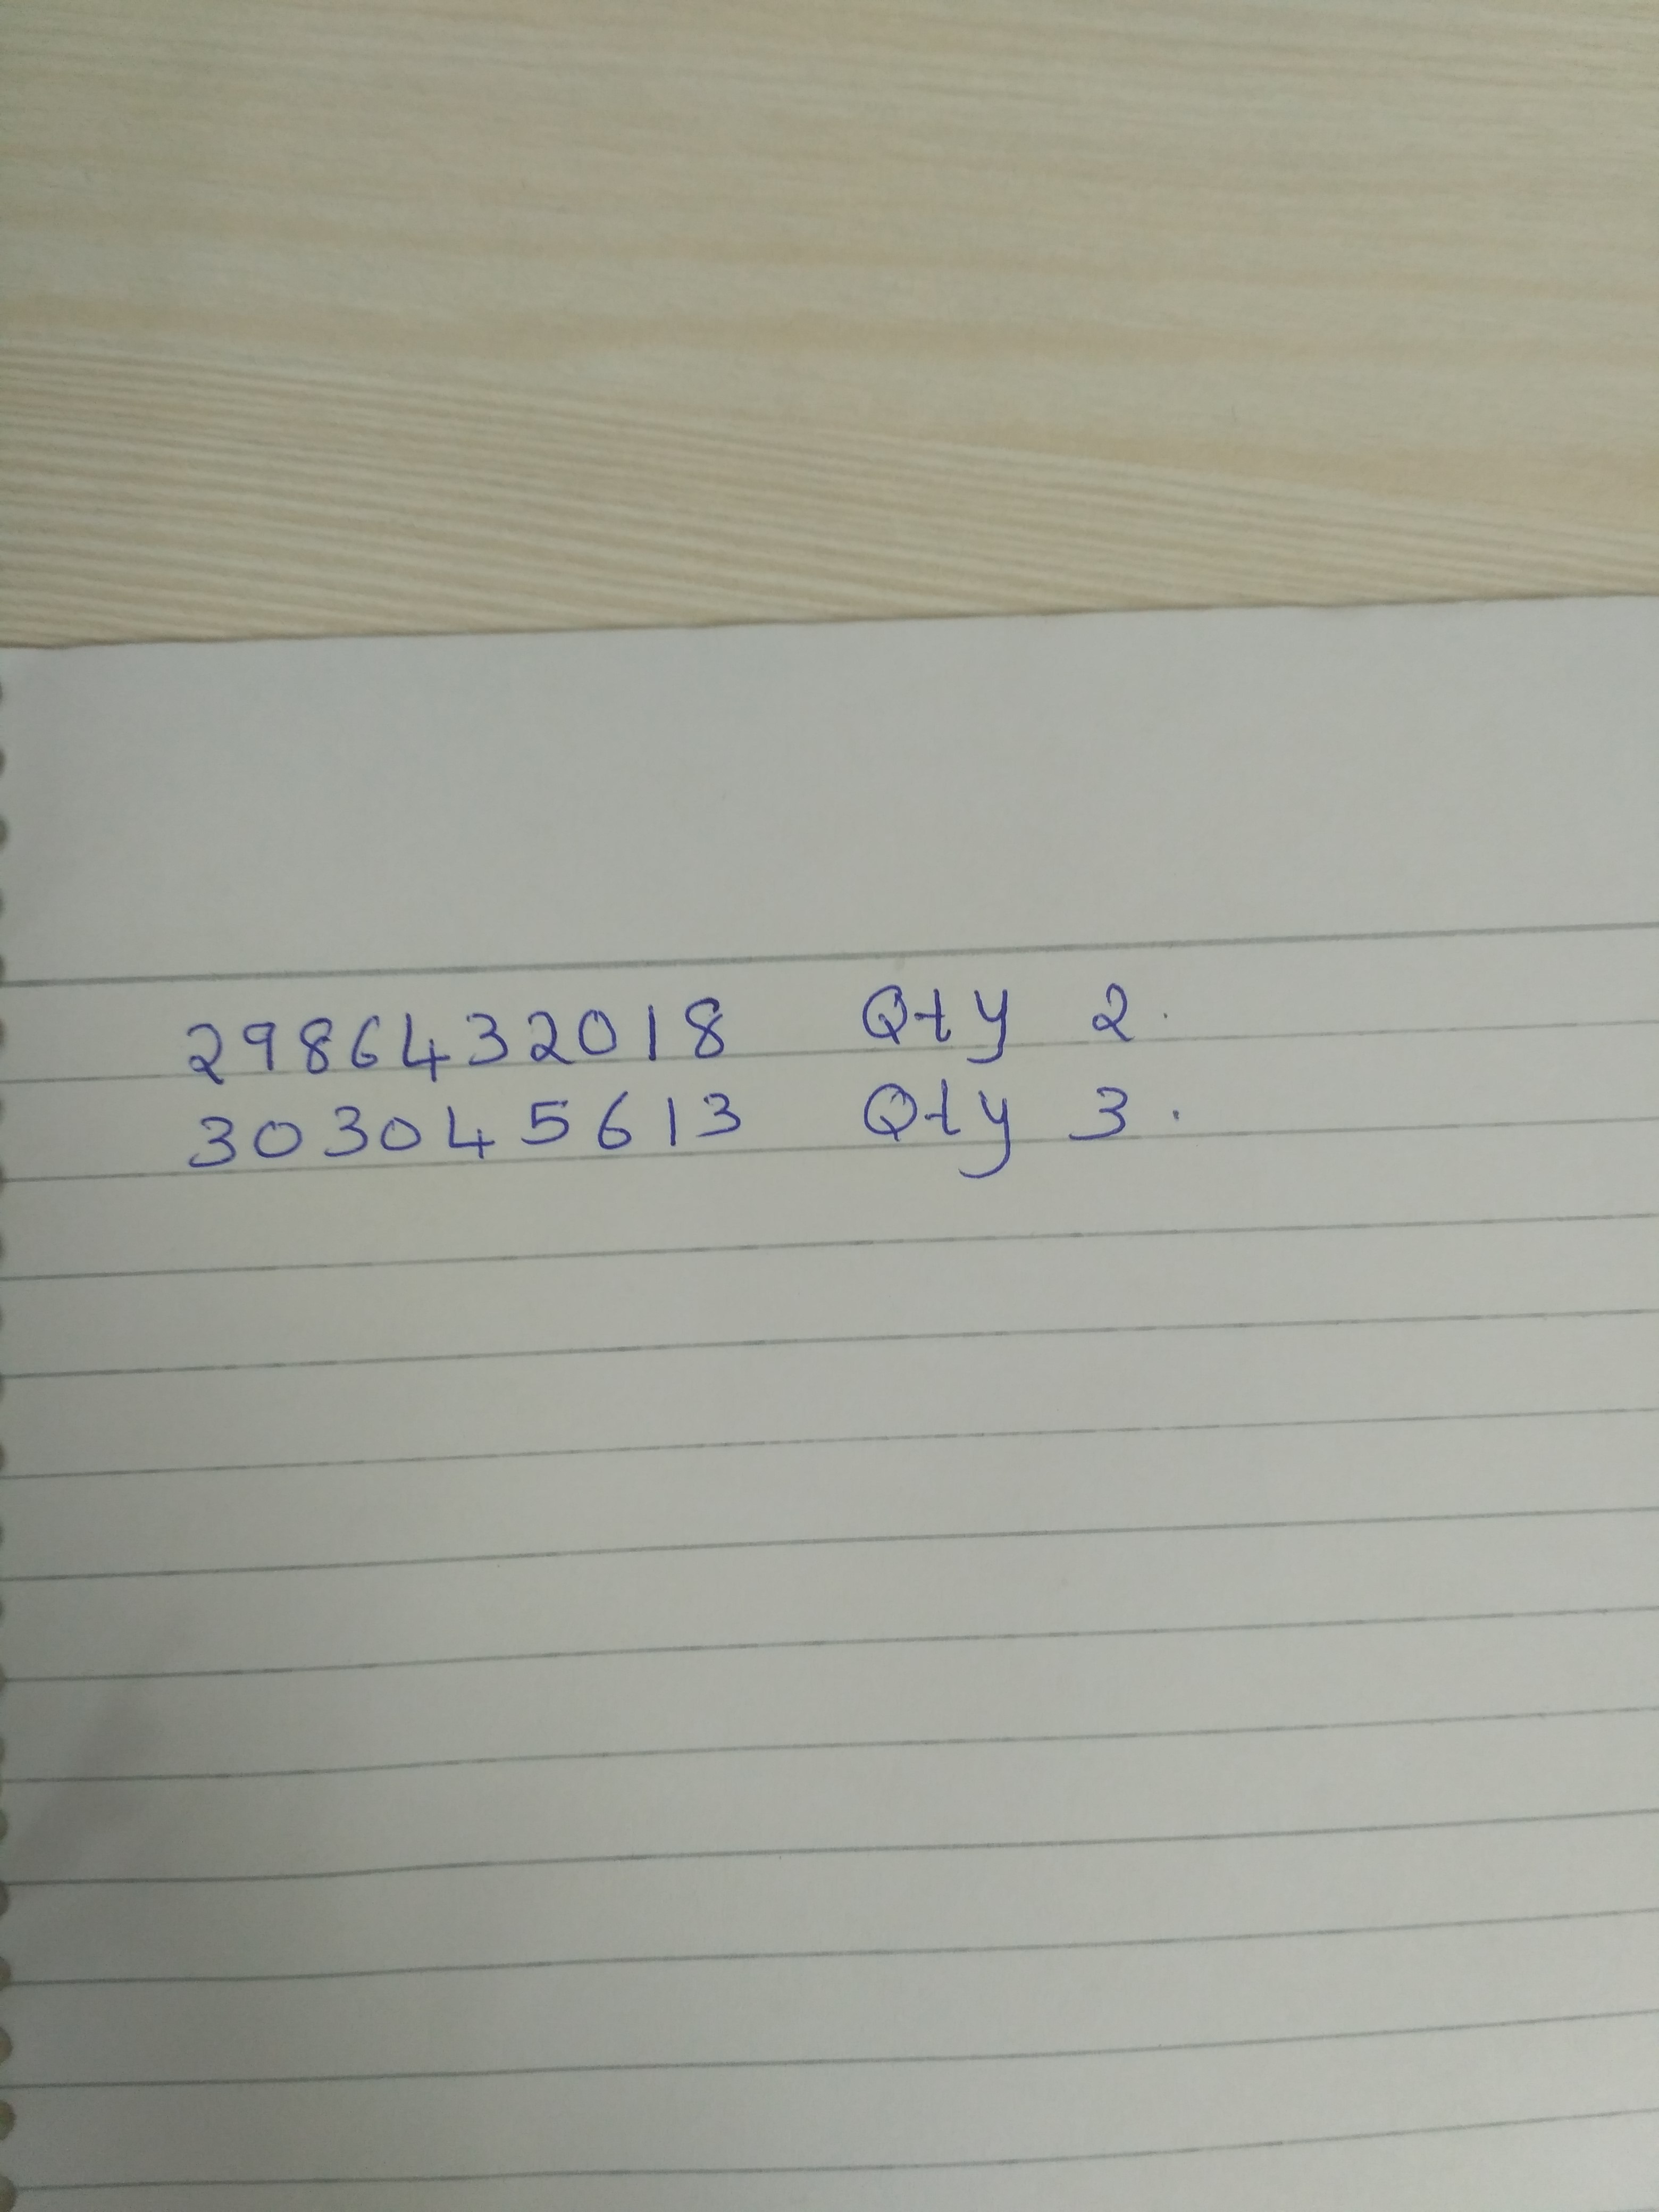 2986432018 Qty 2.
303045613 Qty 3.